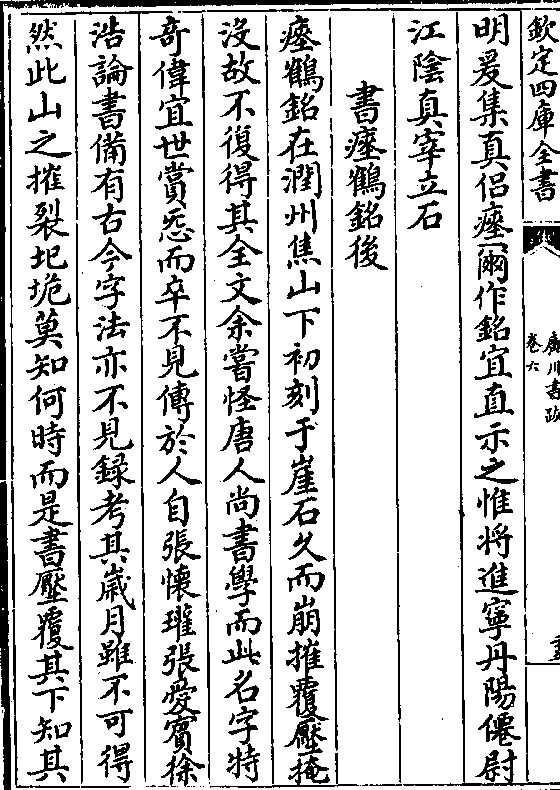 欽定四庫全書
廣川書跋
卷六
明爰集真侶瘞爾作銘宜直示之惟將進寧丹陽僊尉
江陰真宰立石
書瘞鶴銘後
瘞鶴銘在潤州焦山下初刻于崖石久而崩摧覆壓掩
没故不復得其全文余嘗怪唐人尚書學而此名字特
竒偉宜世賞愙而卒不見傳於人自張懷瓘張愛賓徐
浩論書備有古今字法亦不見録考其嵗月雖不可得
然此山之摧裂圮垝莫知何時而是書壓覆其下知其